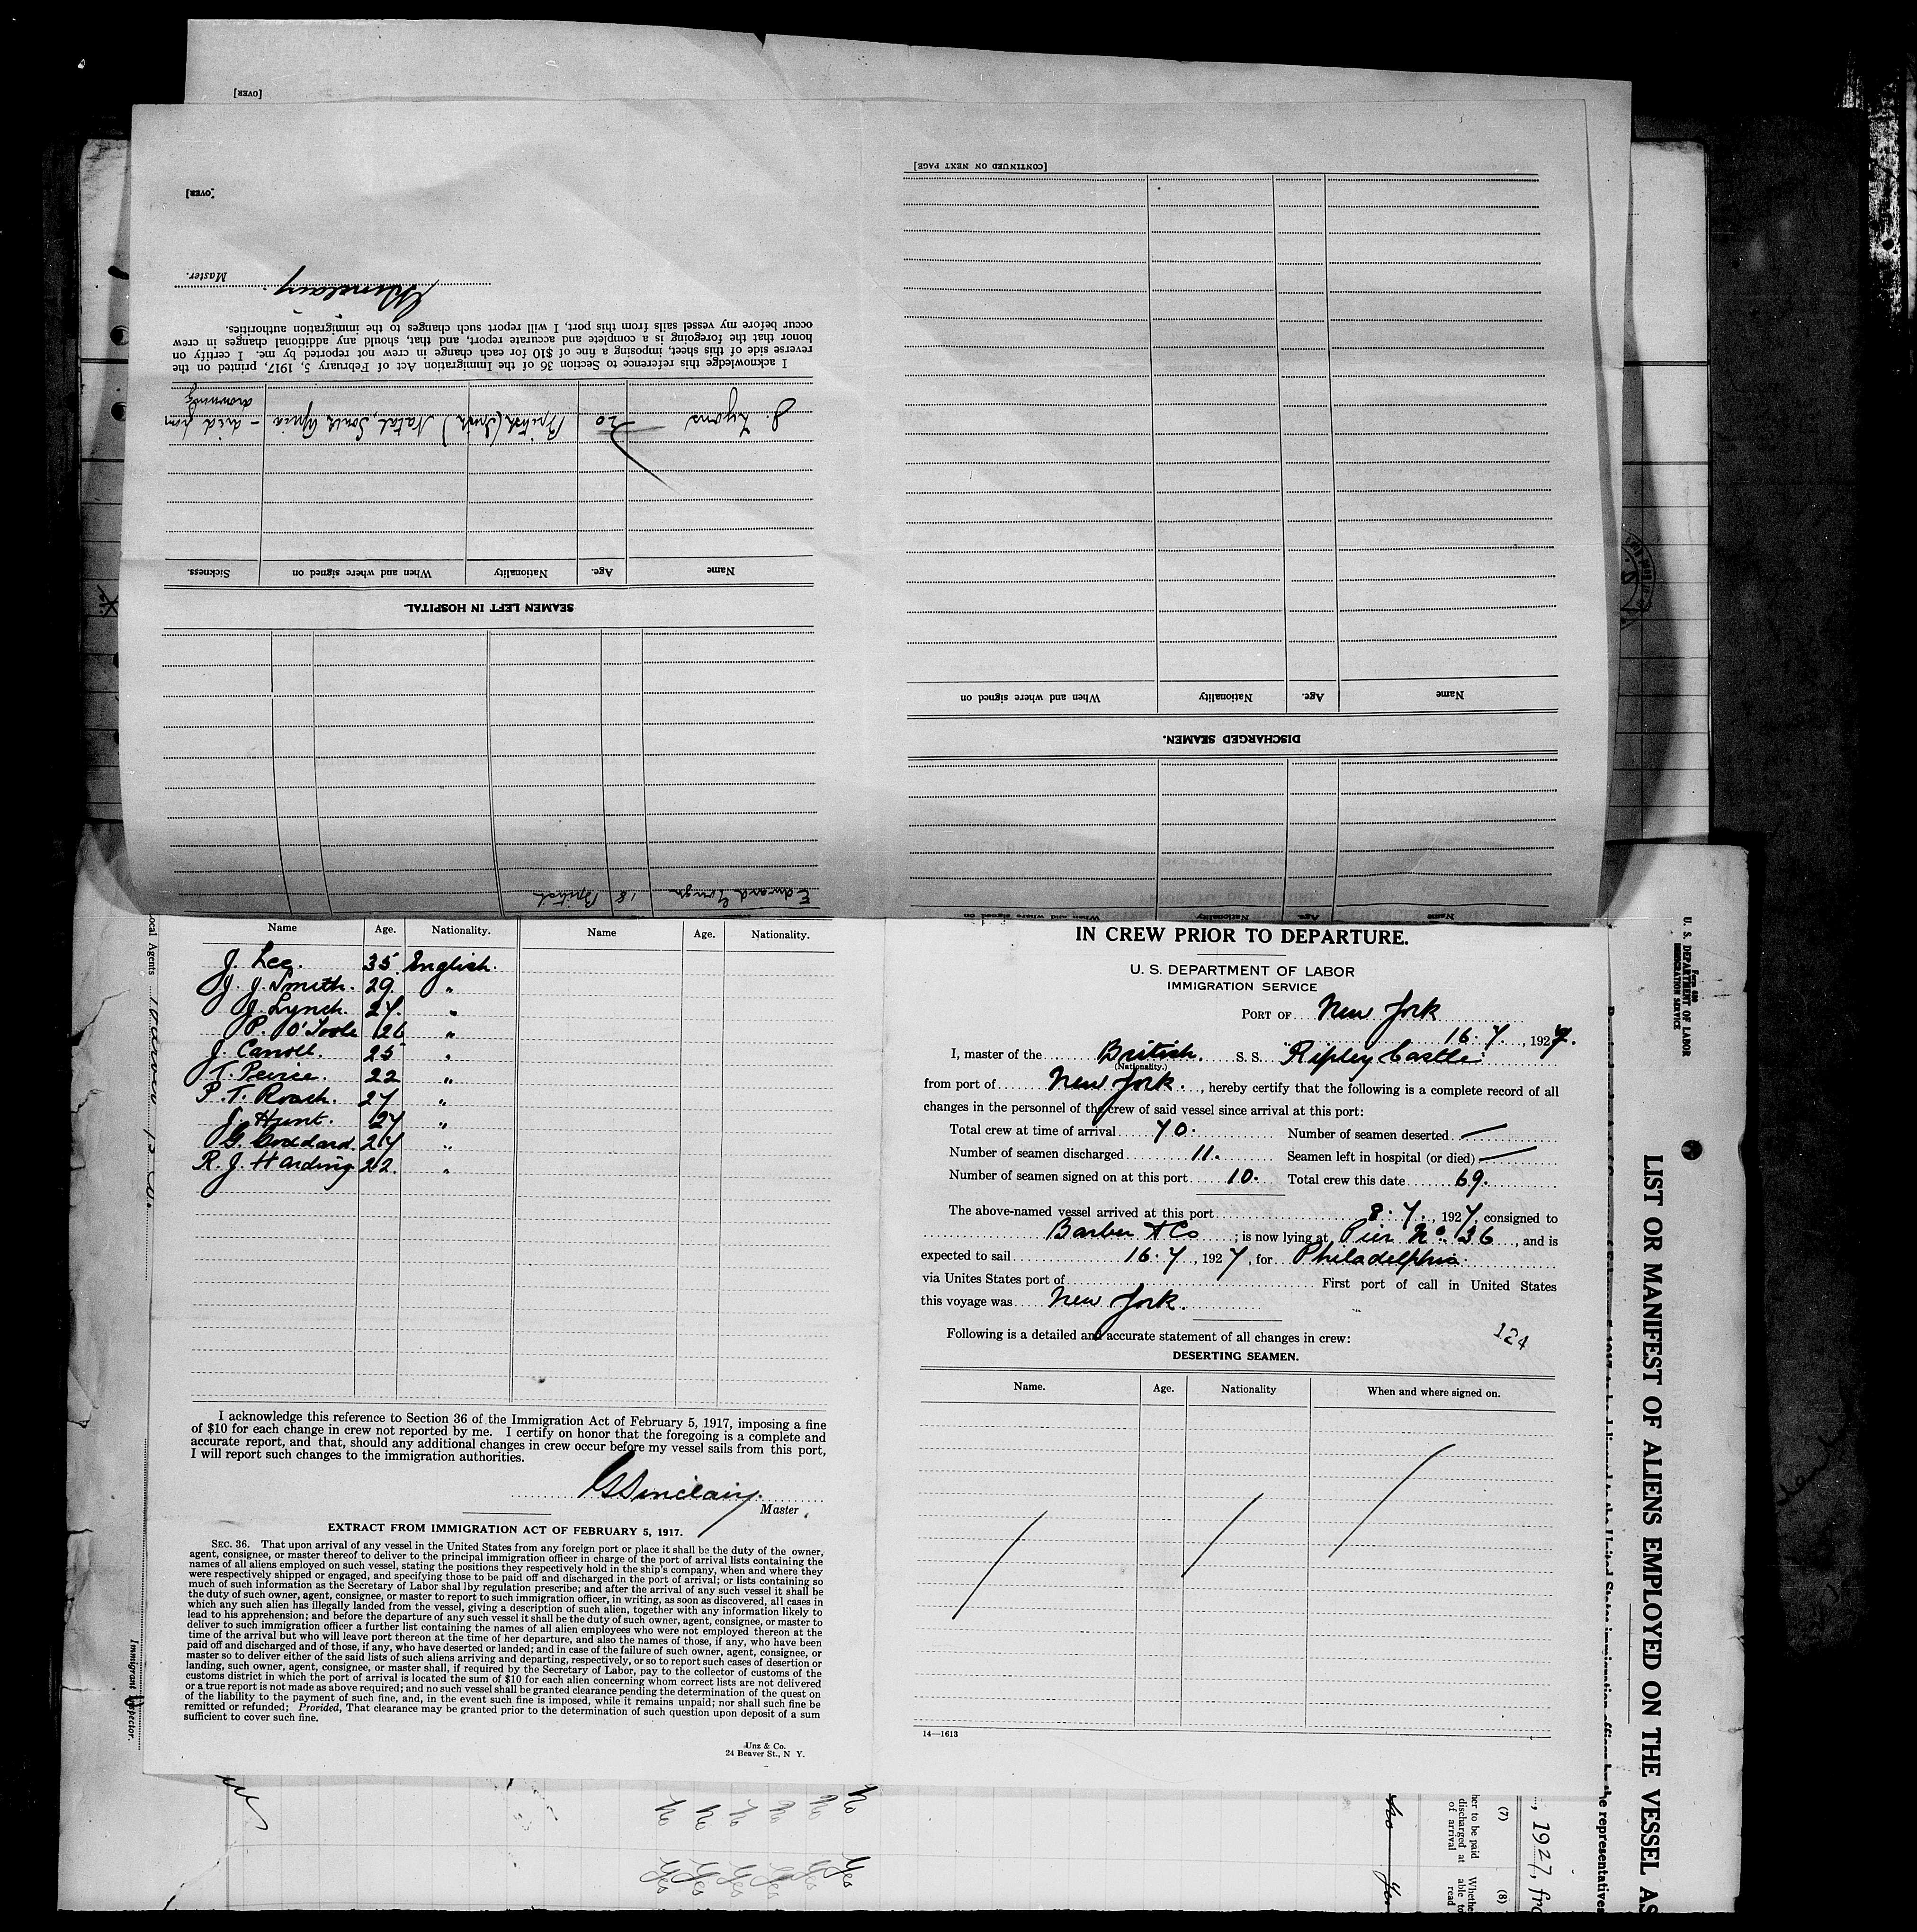 [OVER]
[OVER]
Master.
GSinclair.
I acknowledge this reference to Section 36 of the Immigration Act of February 5, 1917, printed on the
reverse side of this sheet, imposing a fine of $10 for each change in crew not reported by me. I certify on
honor that the foregoing is a complete and accurate report, and that, should any additional changes in crew
occur before my vessel sails from this port, I will report such changes to the immigration authorities.
J. Lyons 20 British (Irish) Natal, South Africa - died from
drowning
Name Age. Nationality When and where signed on Sickness.
SEAMEN LEFT IN HOSPITAL.
Edward 18 British
[CONTINUED ON NEXT PAGE]
Name Age. Nationality When and where signed on
DISCHARGED SEAMEN.
Name Age. Nationality When and where signed on
Name Age. Nationality. Name Age. Nationality.
J. Lee. 35 English.
J. J. Smith. 29. "
J. Lynch. 27. "
P. O'Toole 26 "
J. Carroll. 25 "
T. Peirce. 22 "
P. T. Roach. 27 "
J. Hunt. 27 "
G. Goddard. 27 "
R. J. Harding 22. "
I acknowledge this reference to Section 36 of the Immigration Act of February 5, 1917, imposing a fine
of $10 for each change in crew not reported by me. I certify on honor that the foregoing is a complete and
accurate report, and that, should any additional changes in crew occur before my vessel sails from this port,
I will report such changes to the immigration authorities.
GSinclair.
Master.
EXTRACT FROM IMMIGRATION ACT OF FEBRUARY 5, 1917.
SEC. 36. That upon arrival of any vessel in the United States from any foreign port or place it shall be the duty of the owner,
agent, consignee, or master thereof to deliver to the principal immigration officer in charge of the port of arrival lists containing the
names of all aliens employed on such vessel, stating the positions they respectively hold in the ship's company, when and where they
were respectively shipped or engaged, and specifying those to be paid off and discharged in the port of arrival; or lists containing so
much of such information as the Secretary of Labor shal lby regulation prescribe; and after the arrival of any such vessel it shall be
the duty of such owner, agent, consignee, or master to report to such immigration officer, in writing, as soon as discovered, all cases in
which any such alien has illegally landed from the vessel, giving a description of such alien, together with any information likely to
lead to his apprehension; and before the departure of any such vessel it shall be the duty of such owner, agent, consignee, or master to
deliver to such immigration officer a further list containing the names of all alien employees who were not employed thereon at the
time of the arrival but who will leave port thereon at the time of her departure, and also the names of those, if any, who have been
paid off and discharged and of those, if any, who have deserted or landed; and in case of the failure of such owner, agent, consignee, or
master so to deliver either of the said lists of such aliens arriving and departing, respectively, or so to report such cases of desertion or
landing, such owner, agent, consignee, or master shall, if required by the Secretary of Labor, pay to the collector of customs of the
customs district in which the port of arrival is located the sum of $10 for each alien concerning whom correct lists are not delivered
or a true report is not made as above required; and no such vessel shall be granted clearance pending the determination of the quest on
of the liability to the payment of such fine, and, in the event such fine is imposed, while it remains unpaid; nor shall such fine be
remitted or refunded; Provided, That clearance may be granted prior to the determination of such question upon deposit of a sum
sufficient to cover such fine.
Unz & Co.
24 Beaver St., N Y.
IN CREW PRIOR TO DEPARTURE.
U. S. DEPARTMENT OF LABOR
IMMIGRATION SERVICE
PORT OF New York
16.7., 1927.
I, master of the British. S. S. "Ripley Castle"
(Nationality.)
from port of New York., hereby certify that the following is a complete record of all
changes in the personnel of the crew of said vessel since arrival at this port:
Total crew at time of arrival 70. Number of seamen deserted —
Number of seamen discharged 11. Seamen left in hospital (or died) —
Number of seamen signed on at this port 10. Total crew this date 69.
The above-named vessel arrived at this port 8.7., 1927, consigned to
Barber & Co; is now lying at Pier No. 36, and is
expected to sail 16.7, 1927, for Philadelphia.
via Unites States port of First port of call in United States
this voyage was New York.
Following is a detailed and accurate statement of all changes in crew:
124
DESERTING SEAMEN.
Name. Age. Nationality When and where signed on.
14—1613
Local Agents
Immigrant Inspector.
Form 680
U. S. DEPARTMENT OF LABOR
IMMIGRATION SERVICE
LIST OR MANIFEST OF ALIENS EMPLOYED ON THE VESSEL AS
the representatives
, 1927, fro
(7) (8)
her to be paid
discharged at
of arrival
Whethe
able to
read
No Yes
No No No No No No
No Yes
Yes Yes Yes Yes Yes Yes